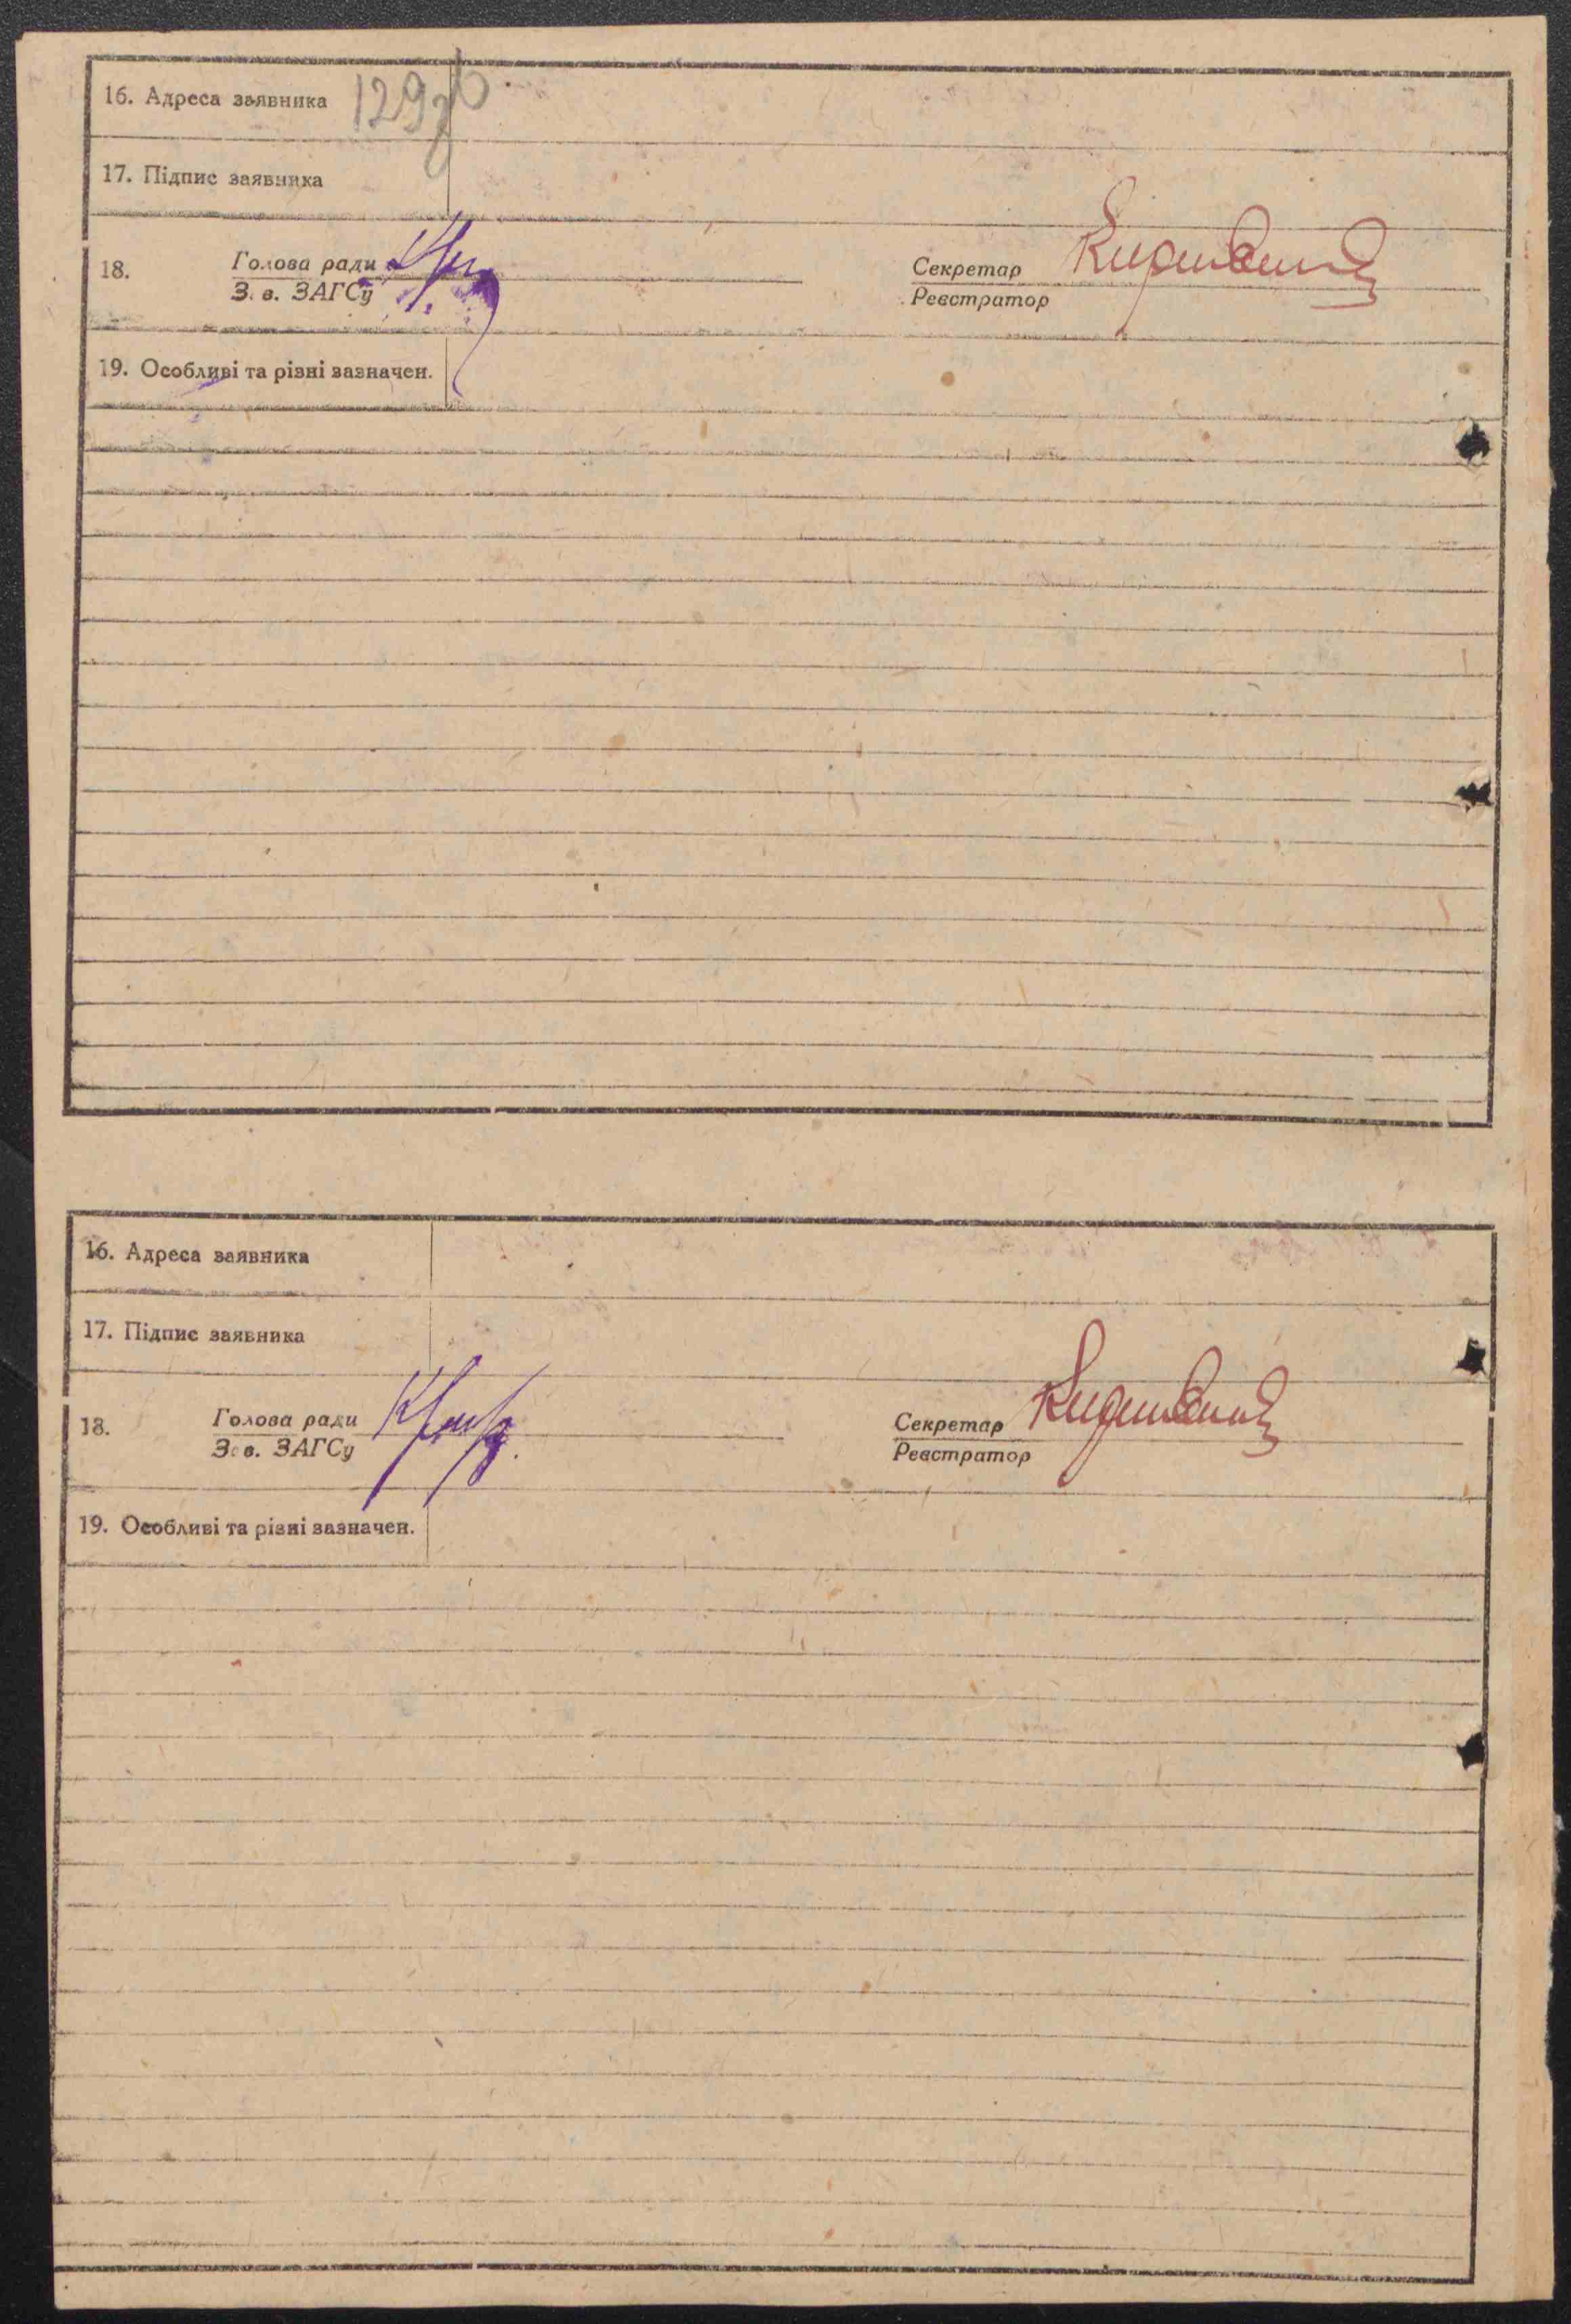 16. Адреса заявника 129 зв
17. Підпис заявника
18. Голова ради Секретар
З. в. ЗАГСу Реєстратор
19. Особливі та різні зазначен.
16. Адреса заявника
17. Підпис заявника
18. Голова ради Секретар
З. в. ЗАГСу Реєстратор
19. Особливі та різні зазначен.